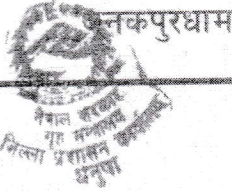 जनकपुरधाम
नेपाल सरकार
गृह मन्त्रालय
जिल्ला प्रशासन कार्यालय
धनुषा